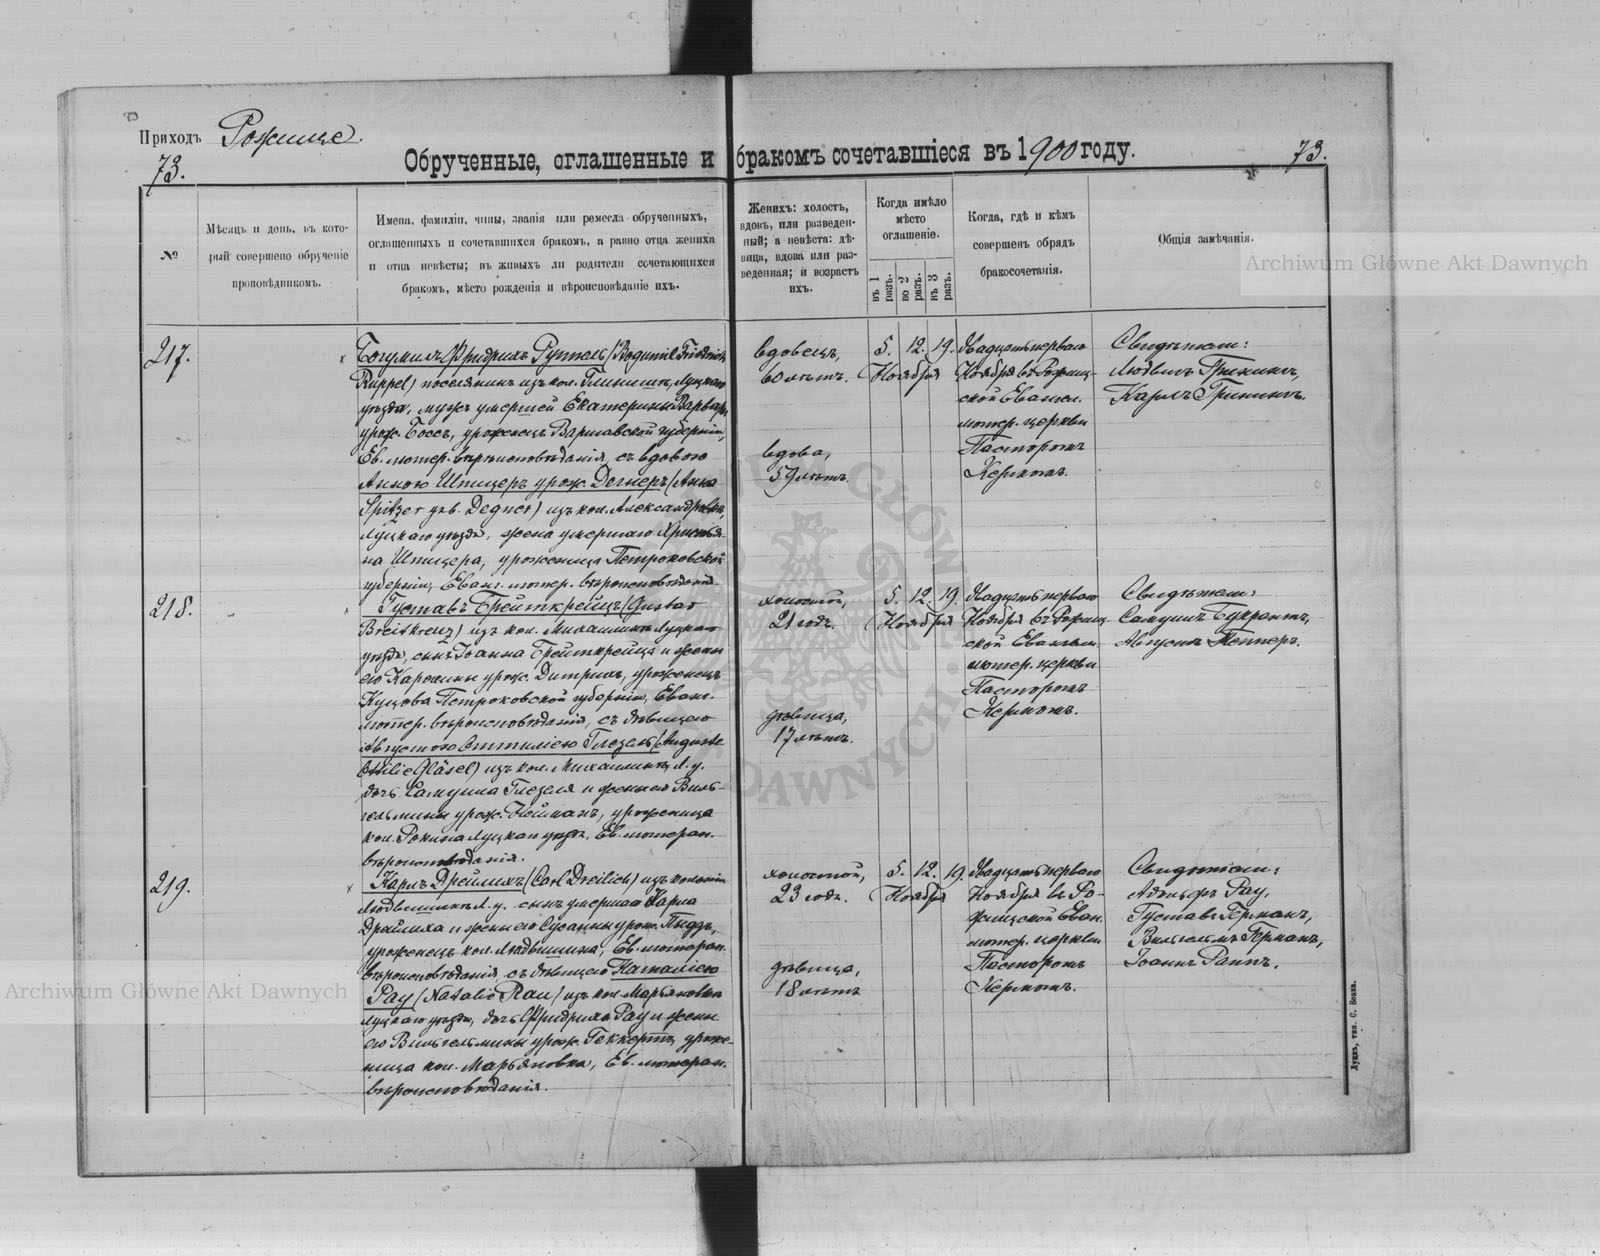 Приходъ Рожище.
73.
Обрученные, оглашенные и бракомъ сочетавшіеся въ 1900 году.
73.
№
Мѣсяцъ и день, въ кото-
рый совершено обрученіе
проповѣдникомъ.
Имена, фамиліи, чины, званія или ремесла обрученныхъ,
оглашенныхъ и сочетавшихся бракомъ, а равно отца жениха
и отца невѣсты; въ живыхъ ли родители сочетающихся
бракомъ, мѣсто рожденія и вѣроисповѣданіе ихъ.
Женихъ: холостъ,
вдовъ, или разведен-
ный; а невѣста: дѣ-
вица, вдова или раз-
веденная; и возрастъ
ихъ.
Когда имѣло
мѣсто
оглашеніе.
въ 1 разъ.
во 2 разъ.
въ 3 разъ.
Когда, гдѣ и кѣмъ
совершенъ обрядъ
бракосочетанія.
Общія замѣчанія.
Archiwum Główne Akt Dawnych
217.
Богумилъ Фридрихъ Руппель (Bogumil Friedrich
Ruppel) поселянинъ изъ кол. Глинищъ, Луцкаго
уѣзда, мужъ умершей Екатерины Варвары
урож. Боссъ, уроженецъ Варшавской губерніи,
Ев. лютер. вѣроисповѣданія, съ вдовою
Анною Шпицеръ урож. Дегнеръ (Anna
Spitzer geb. Degner) изъ кол. Александровки,
Луцкаго уѣзда, жена умершаго Христья-
на Шпицера, уроженица Петроковской
губерніи, Еванг. лютер. вѣроисповѣданія.
вдовецъ,
60 лѣтъ.
вдова,
59 лѣтъ.
5. 12. 19.
Ноября
Двадцать перваго
Ноября въ Рожищ-
ской Евангел.
лютер. церкви
Пасторомъ
Кермомъ.
Свидѣтели:
Людвигъ
Карлъ
218.
Густавъ Брейткрейцъ (Gustav
Breitkreuz) изъ кол. Михайлинъ Луцкаго
уѣзда, сынъ Іоанна Брейткрейца и жены
его Каролины урож. Дитрихъ, уроженецъ
Петроковской губерніи, Еванг.
лютер. вѣроисповѣданія, съ дѣвицею
Августою Оттиліею Глезель (Auguste
Ottilie Gläsel) изъ кол. Михайлинъ, Л. у.
дочь Самуила Глезеля и жены его Виль-
гельмины урож. Нейманъ, уроженица
кол. Рокина Луцкаго уѣзда, Ев. лютеран.
вѣроисповѣданія.
холостой,
21 годъ.
дѣвица,
17 лѣтъ.
5. 12. 19.
Ноября
Двадцать перваго
Ноября въ Рожищ-
ской Евангели
лютер. церкви
Пасторомъ
Кермомъ.
Свидѣтели:
Самуилъ Букгольтъ,
Августъ
219.
Карлъ Дрейлихъ (Carl Dreilich) изъ колоніи
Людвишинъ Л. у. сынъ умершаго Карла
Дрейлиха и жены его Сусанны урож.
уроженецъ кол. Людвишина, Ев. лютеран.
вѣроисповѣданія съ дѣвицею Наталіею
Рау (Natalie Rau) изъ кол. Марьяновки
Луцкаго уѣзда, дочь Фридриха Рау и жены
его Вильгельмины урож. Геккертъ, уроже-
ница кол. Марьяновка, Ев. лютеран.
вѣроисповѣданія.
холостой,
23 года.
дѣвица,
18 лѣтъ
5. 12. 19.
Ноября
Двадцать перваго
Ноября въ Ро-
жищской Еван.
лютер. церкви
Пасторомъ
Кермомъ.
Свидѣтели:
Адольфъ Рау,
Густавъ Германъ,
Вильгельмъ Германъ,
Іоаннъ Раппъ.
Archiwum Główne Akt Dawnych
Луцкъ, тип. С. Бонка.